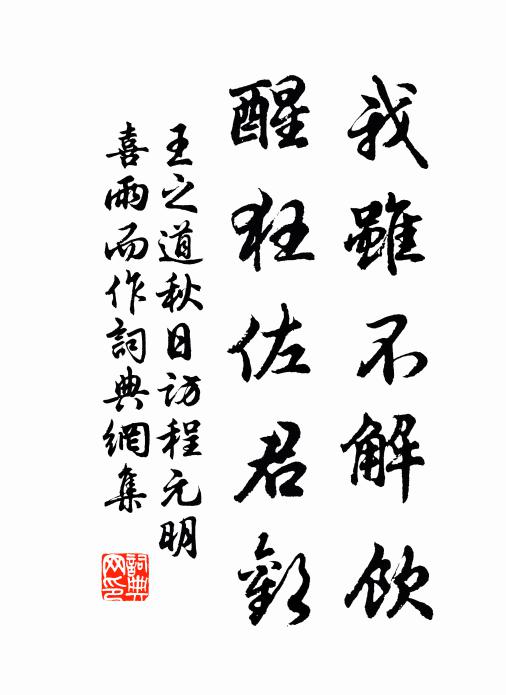 我雖不解飲
醒狂佐君歡
王之道秋日訪程元明
喜雨而作詞典網集
詞典網印